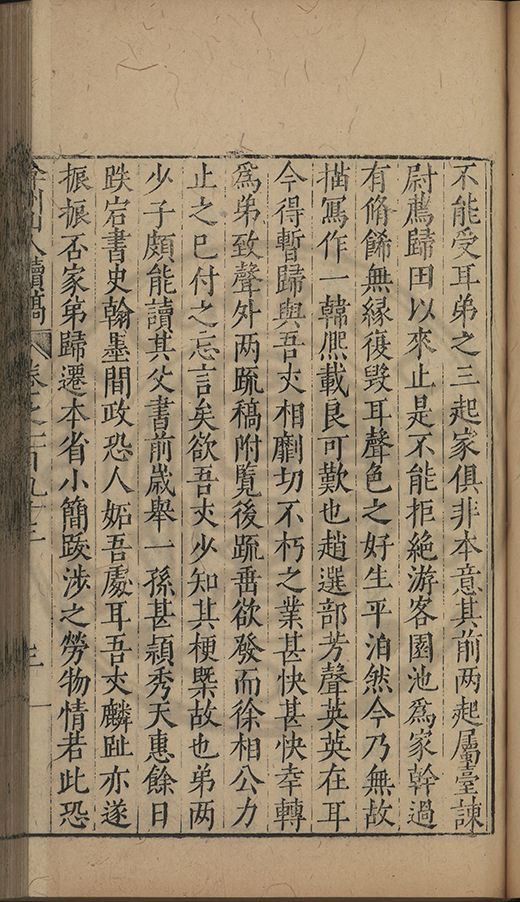 不能受耳弟之三起家俱非本意其前两起屬臺諫
尉薦歸田以來止是不能拒絶游客園池爲家幹過
有脩餙無縁復毀耳聲色之好生平泊然今乃無故
描寫作一韓熈載良可歎也趙選部芳聲英英在耳
今得暫歸與吾丈相劘切不朽之業甚快甚快幸轉
爲弟致聲外两疏稿附覽後疏垂欲發而徐相公力
止之已付之忘言矣欲吾丈少知其梗槩故也弟两
少子頗能讀其父書前歲舉一孫甚頴秀天惠餘日
跌宕書史翰墨間政恐人妬吾處耳吾丈麟趾亦遂
振振否家弟歸遷本省小簡䟦涉之勞物情若此恐
州山人續稿 卷之一百九十三 三